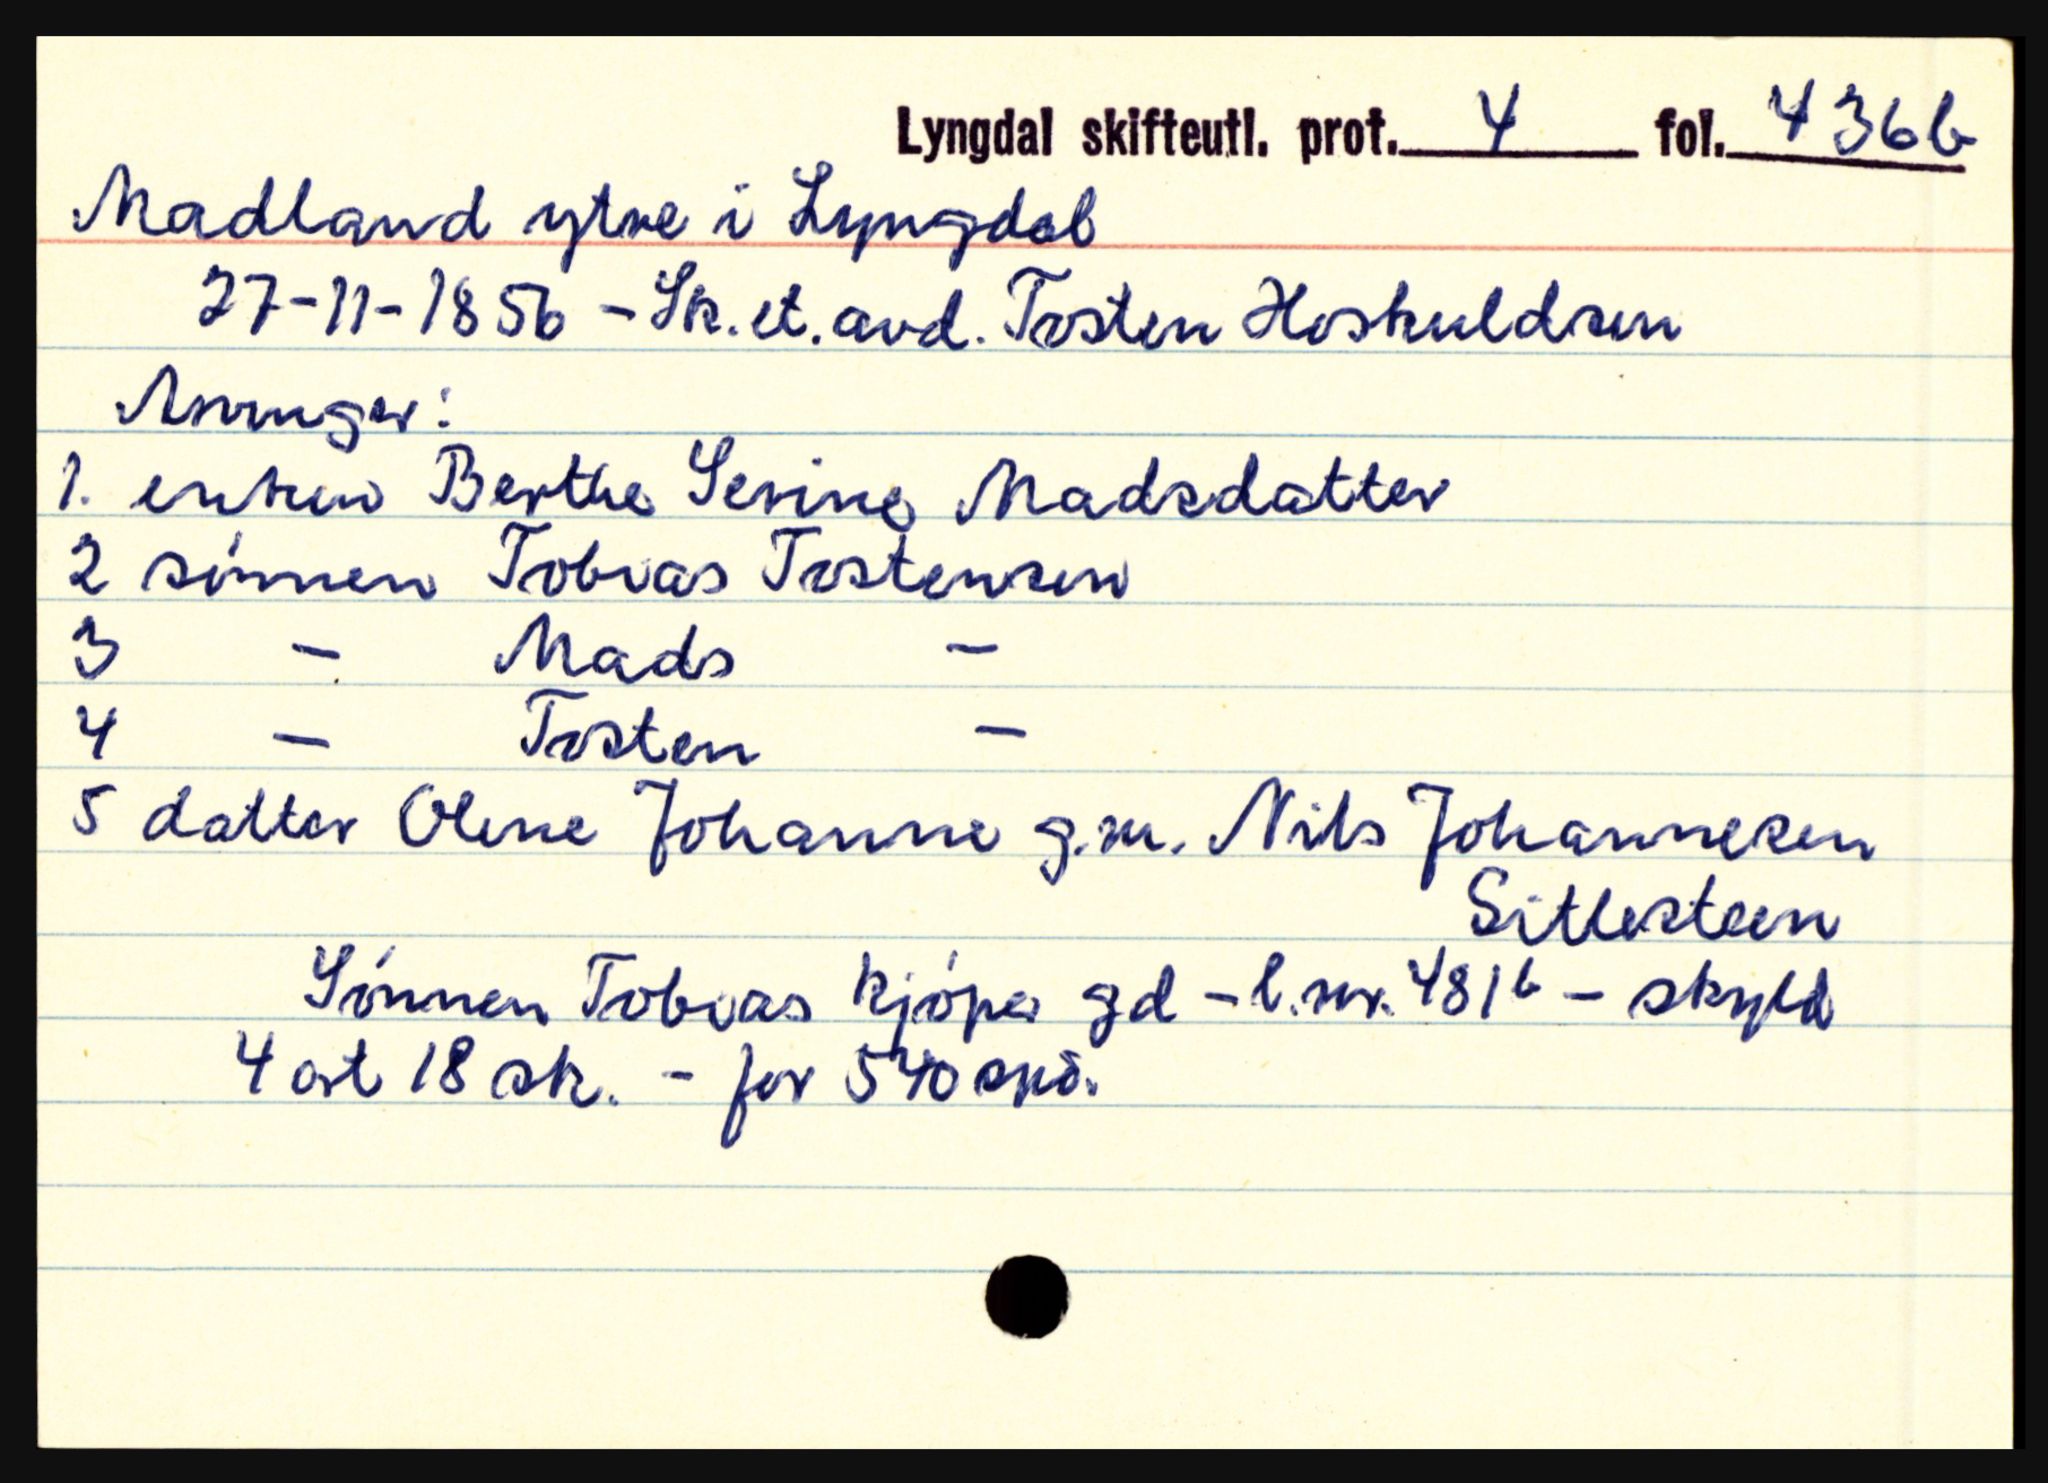 Lyngdal skifteutl. prot. 4 fol. 436b
Madland ytre i Lyngdal
27-11-1856 - Sk. et. avd. Tosten Hoskuldsen
Arvinger:
1. enken Berthe Serine Madsdatter
2 sønnen Tobias Tostensen
3 - Mads -
4 - Tosten -
5 datter Olene Johanne g.m. Nils Johannesen
Sitlesteen
Sønnen Tobias kjøper gd - l.nr. 481b - skyld
4 ort 18 sk. - for 540 spd.